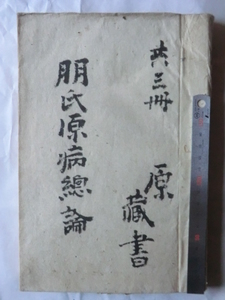 共三冊
原藏書
朋氏原病總論